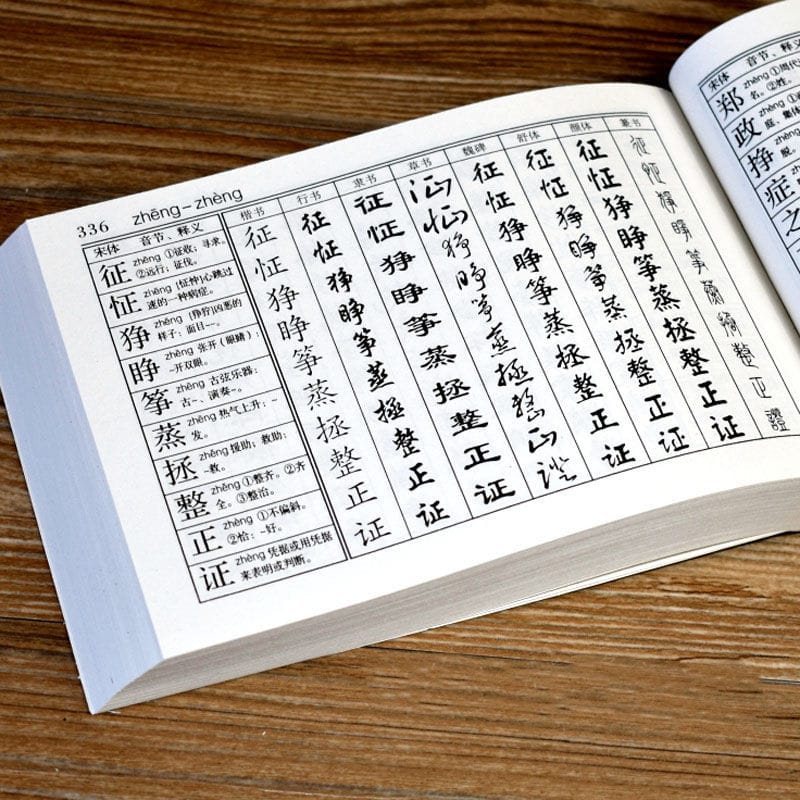 336 zhēng－zhèng
宋体 音节、释义 楷书 行书 隶书 草书 魏碑 舒体 颜体 篆书
征 zhēng ①征收；寻求。
②远行；征伐。
征 征 征 征 征 征 征 征
怔 zhēng [怔忡]心跳过
速的一种病症。
怔 怔 怔 怔 怔 怔 怔 怔
狰 zhēng [狰狞]凶恶的
样子：面目~~。
狰 狰 狰 狰 狰 狰 狰 狰
睁 zhēng 张开（眼睛）：
~开双眼。
睁 睁 睁 睁 睁 睁 睁 睁
筝 zhēng 古弦乐器：
古~、演奏~。
筝 筝 筝 筝 筝 筝 筝 筝
蒸 zhēng 热气上升：~
发。
蒸 蒸 蒸 蒸 蒸 蒸 蒸 蒸
拯 zhěng 援助；救助：
~救。
拯 拯 拯 拯 拯 拯 拯 拯
整 zhěng ①整齐。②齐
全。③整治。
整 整 整 整 整 整 整 整
正 zhèng ①不偏斜。
②恰：~好。
正 正 正 正 正 正 正 正
证 zhèng 凭据或用凭据
来表明或判断。
证 证 证 证 证 证 证 證
宋体 音节、释义
郑 zhèng ①周代
名。②姓。
政 zhèng
庭、集体
挣 zhèng
脱。
症 zhèng
之